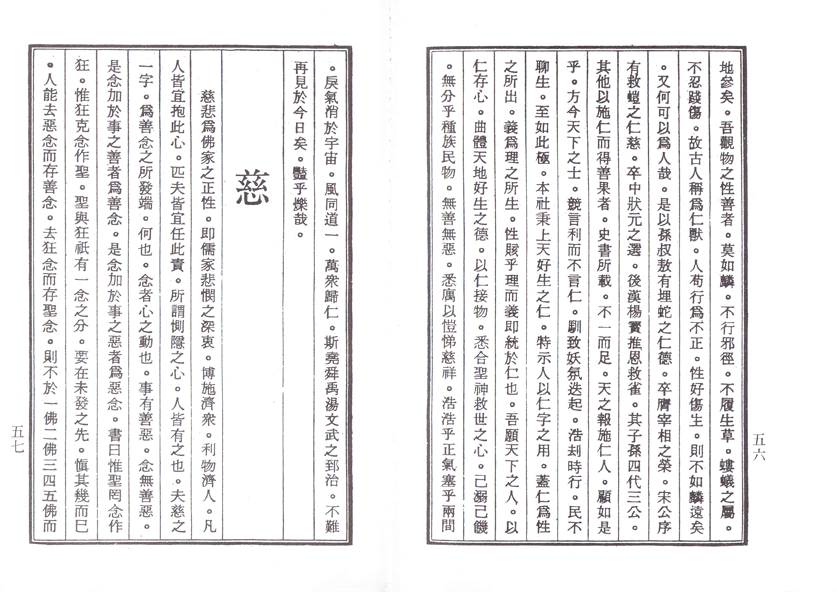 地參矣。吾觀物之性善者。莫如麟。不行邪徑。不履生草。螻蟻之屬。
不忍踐傷。故古人稱為仁獸。人苟行為不正。性好傷生。則不如麟遠矣
。又何可以為人哉。是以孫叔敖有埋蛇之仁德。卒膺宰相之榮。宋公序
有救螘之仁慈。卒中狀元之選。後漢楊寶推恩救雀。其子孫四代三公。
其他以施仁而得善果者。史書所載。不一而足。天之報施仁人。顧如是
乎。方今天下之士。競言利而不言仁。馴致妖氛迭起。浩刦時行。民不
聊生。至如此極。本社秉上天好生之仁。特示人以仁字之用。蓋仁為性
之所出。義為理之所生。性賅乎理而義即統於仁也。吾願天下之人。以
仁存心。曲體天地好生之德。以仁接物。悉合聖神救世之心。己溺己饑
。無分乎種族民物。無善無惡。悉寓以愷悌慈祥。浩浩乎正氣塞乎兩間
五六
。戾氣消於宇宙。風同道一。萬衆歸仁。斯堯舜禹湯文武之郅治。不難
再見於今日矣。豔乎爍哉。
慈
慈悲為佛家之正性。即儒家悲憫之深衷。博施濟衆。利物濟人。凡
人皆宜抱此心。匹夫皆宜任此責。所謂惻隱之心。人皆有之也。夫慈之
一字。為善念之所發端。何也。念者心之動也。事有善惡。念無善惡。
是念加於事之善者為善念。是念加於事之惡者為惡念。書曰惟聖罔念作
狂。惟狂克念作聖。聖與狂祇有一念之分。要在未發之先。愼其幾而已
。人能去惡念而存善念。去狂念而存聖念。則不於一佛二佛三四五佛而
五七